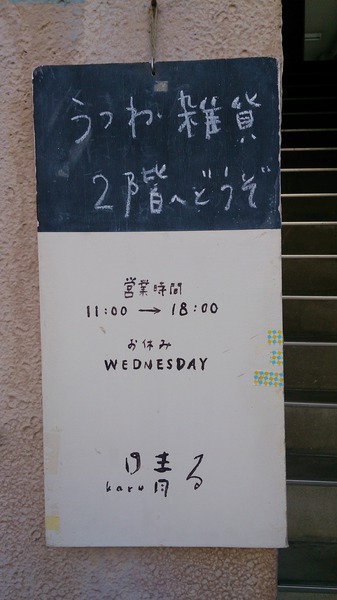 うつわ 雑貨
2階へどうぞ
営業時間
11:00 → 18:00
お休み
WEDNESDAY
晴る
haru